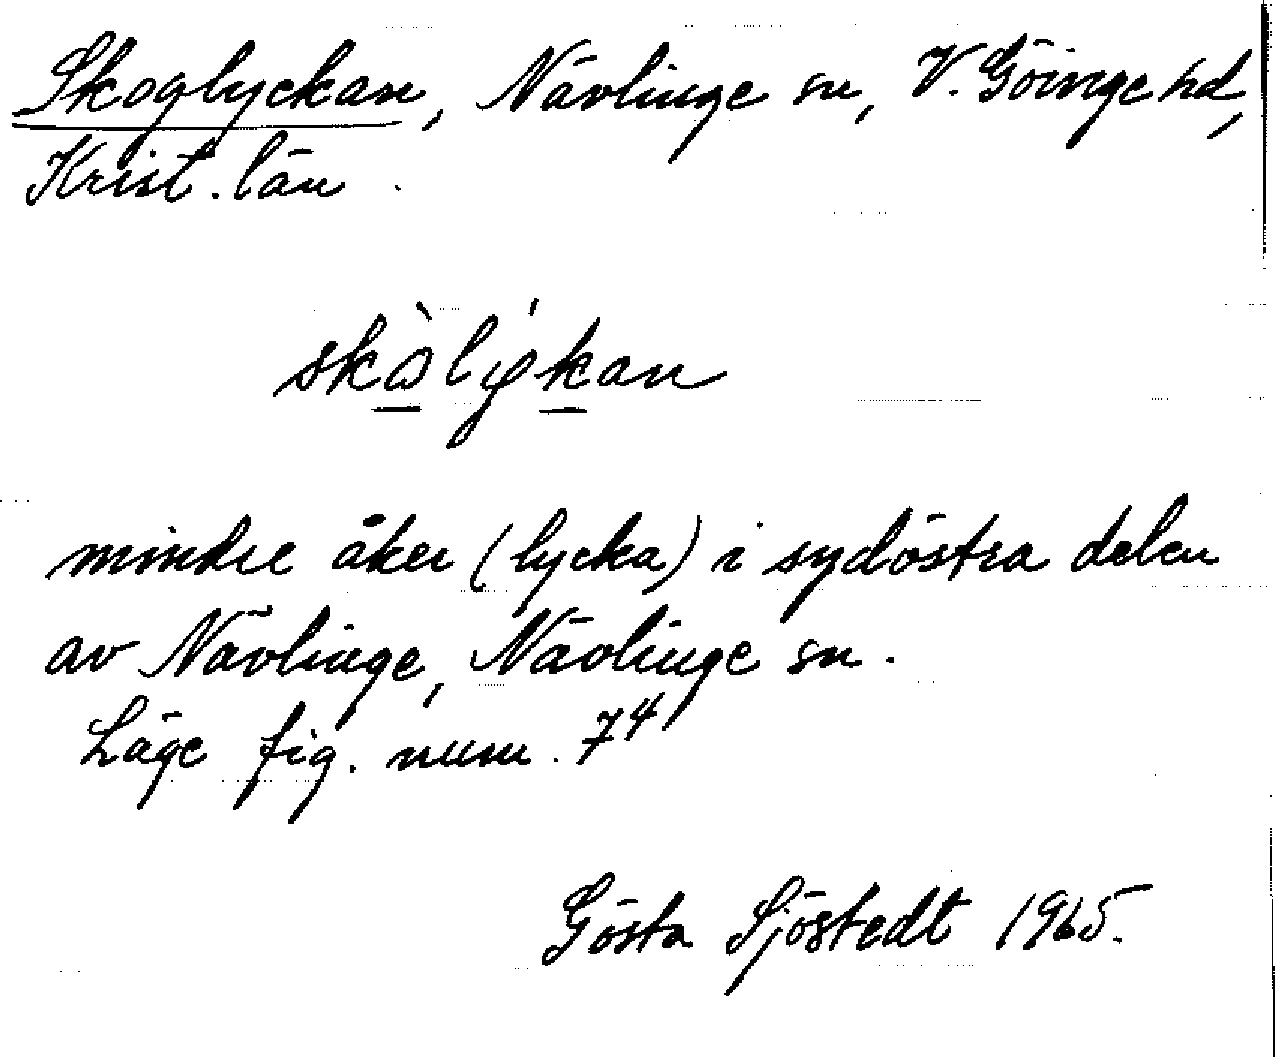 Skoglyckan, Nävlinge sn, V. Göinge hd,
Krist. län.
mindre åker (lycka) i sydöstra delen
av Nävlinge, Nävlinge sn.
Läge fig. num. 74
Gösta Sjöstedt 1965.